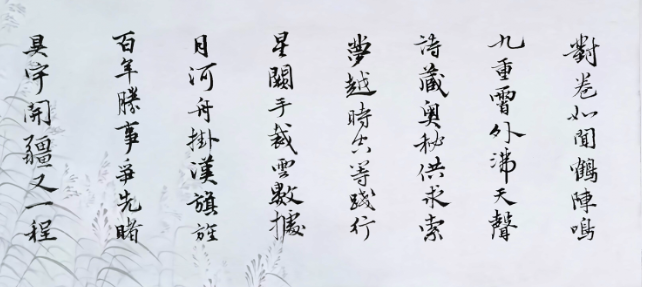 對卷如聞鶴陣鳴
九重霄外沸天聲
詩藏奧秘供求索
夢越時空等踐行
星闕手裁雲數據
月河舟掛漢旗旌
百年勝事爭先睹
宇開疆又一程